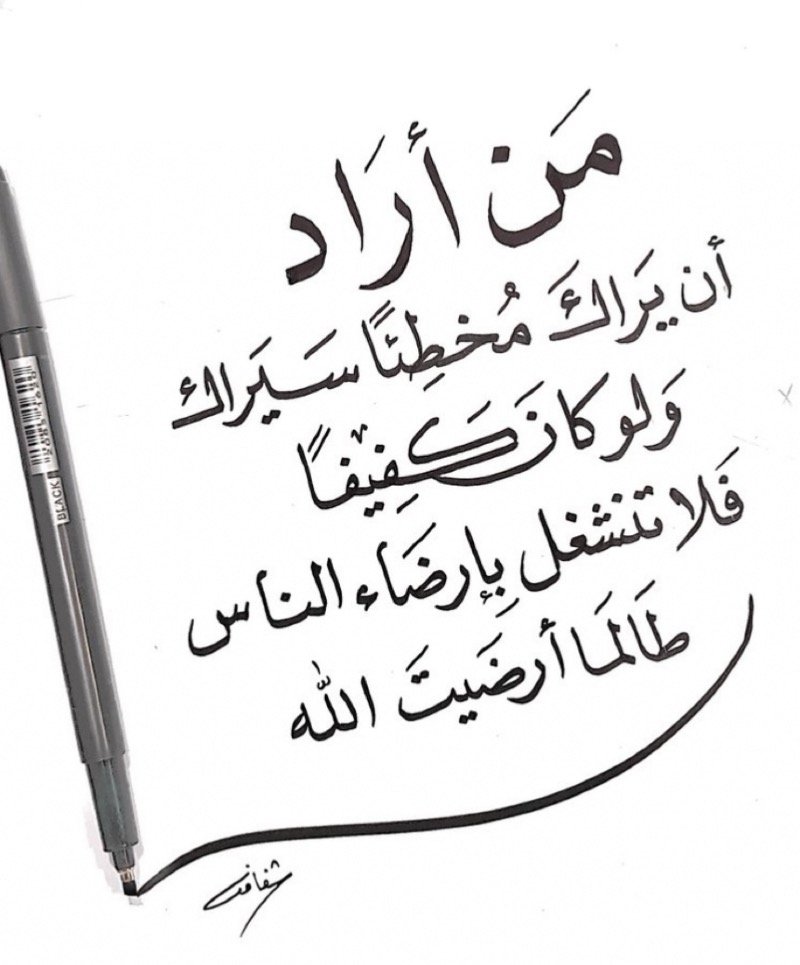 مَن أرَاد
أن يَراكَ مُخطِئًا سَيَراك
وَلو كانَ كَفِيفًا
فَلا تنشغل بِإرضَاء الناس
طَالمَا أرضَيتَ الله
شفافه
BLACK